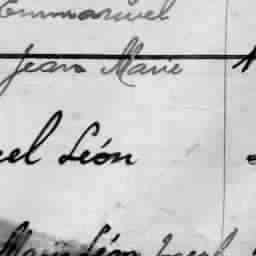 Emmanuel
Jean Marie
el Léon
Marie Léon